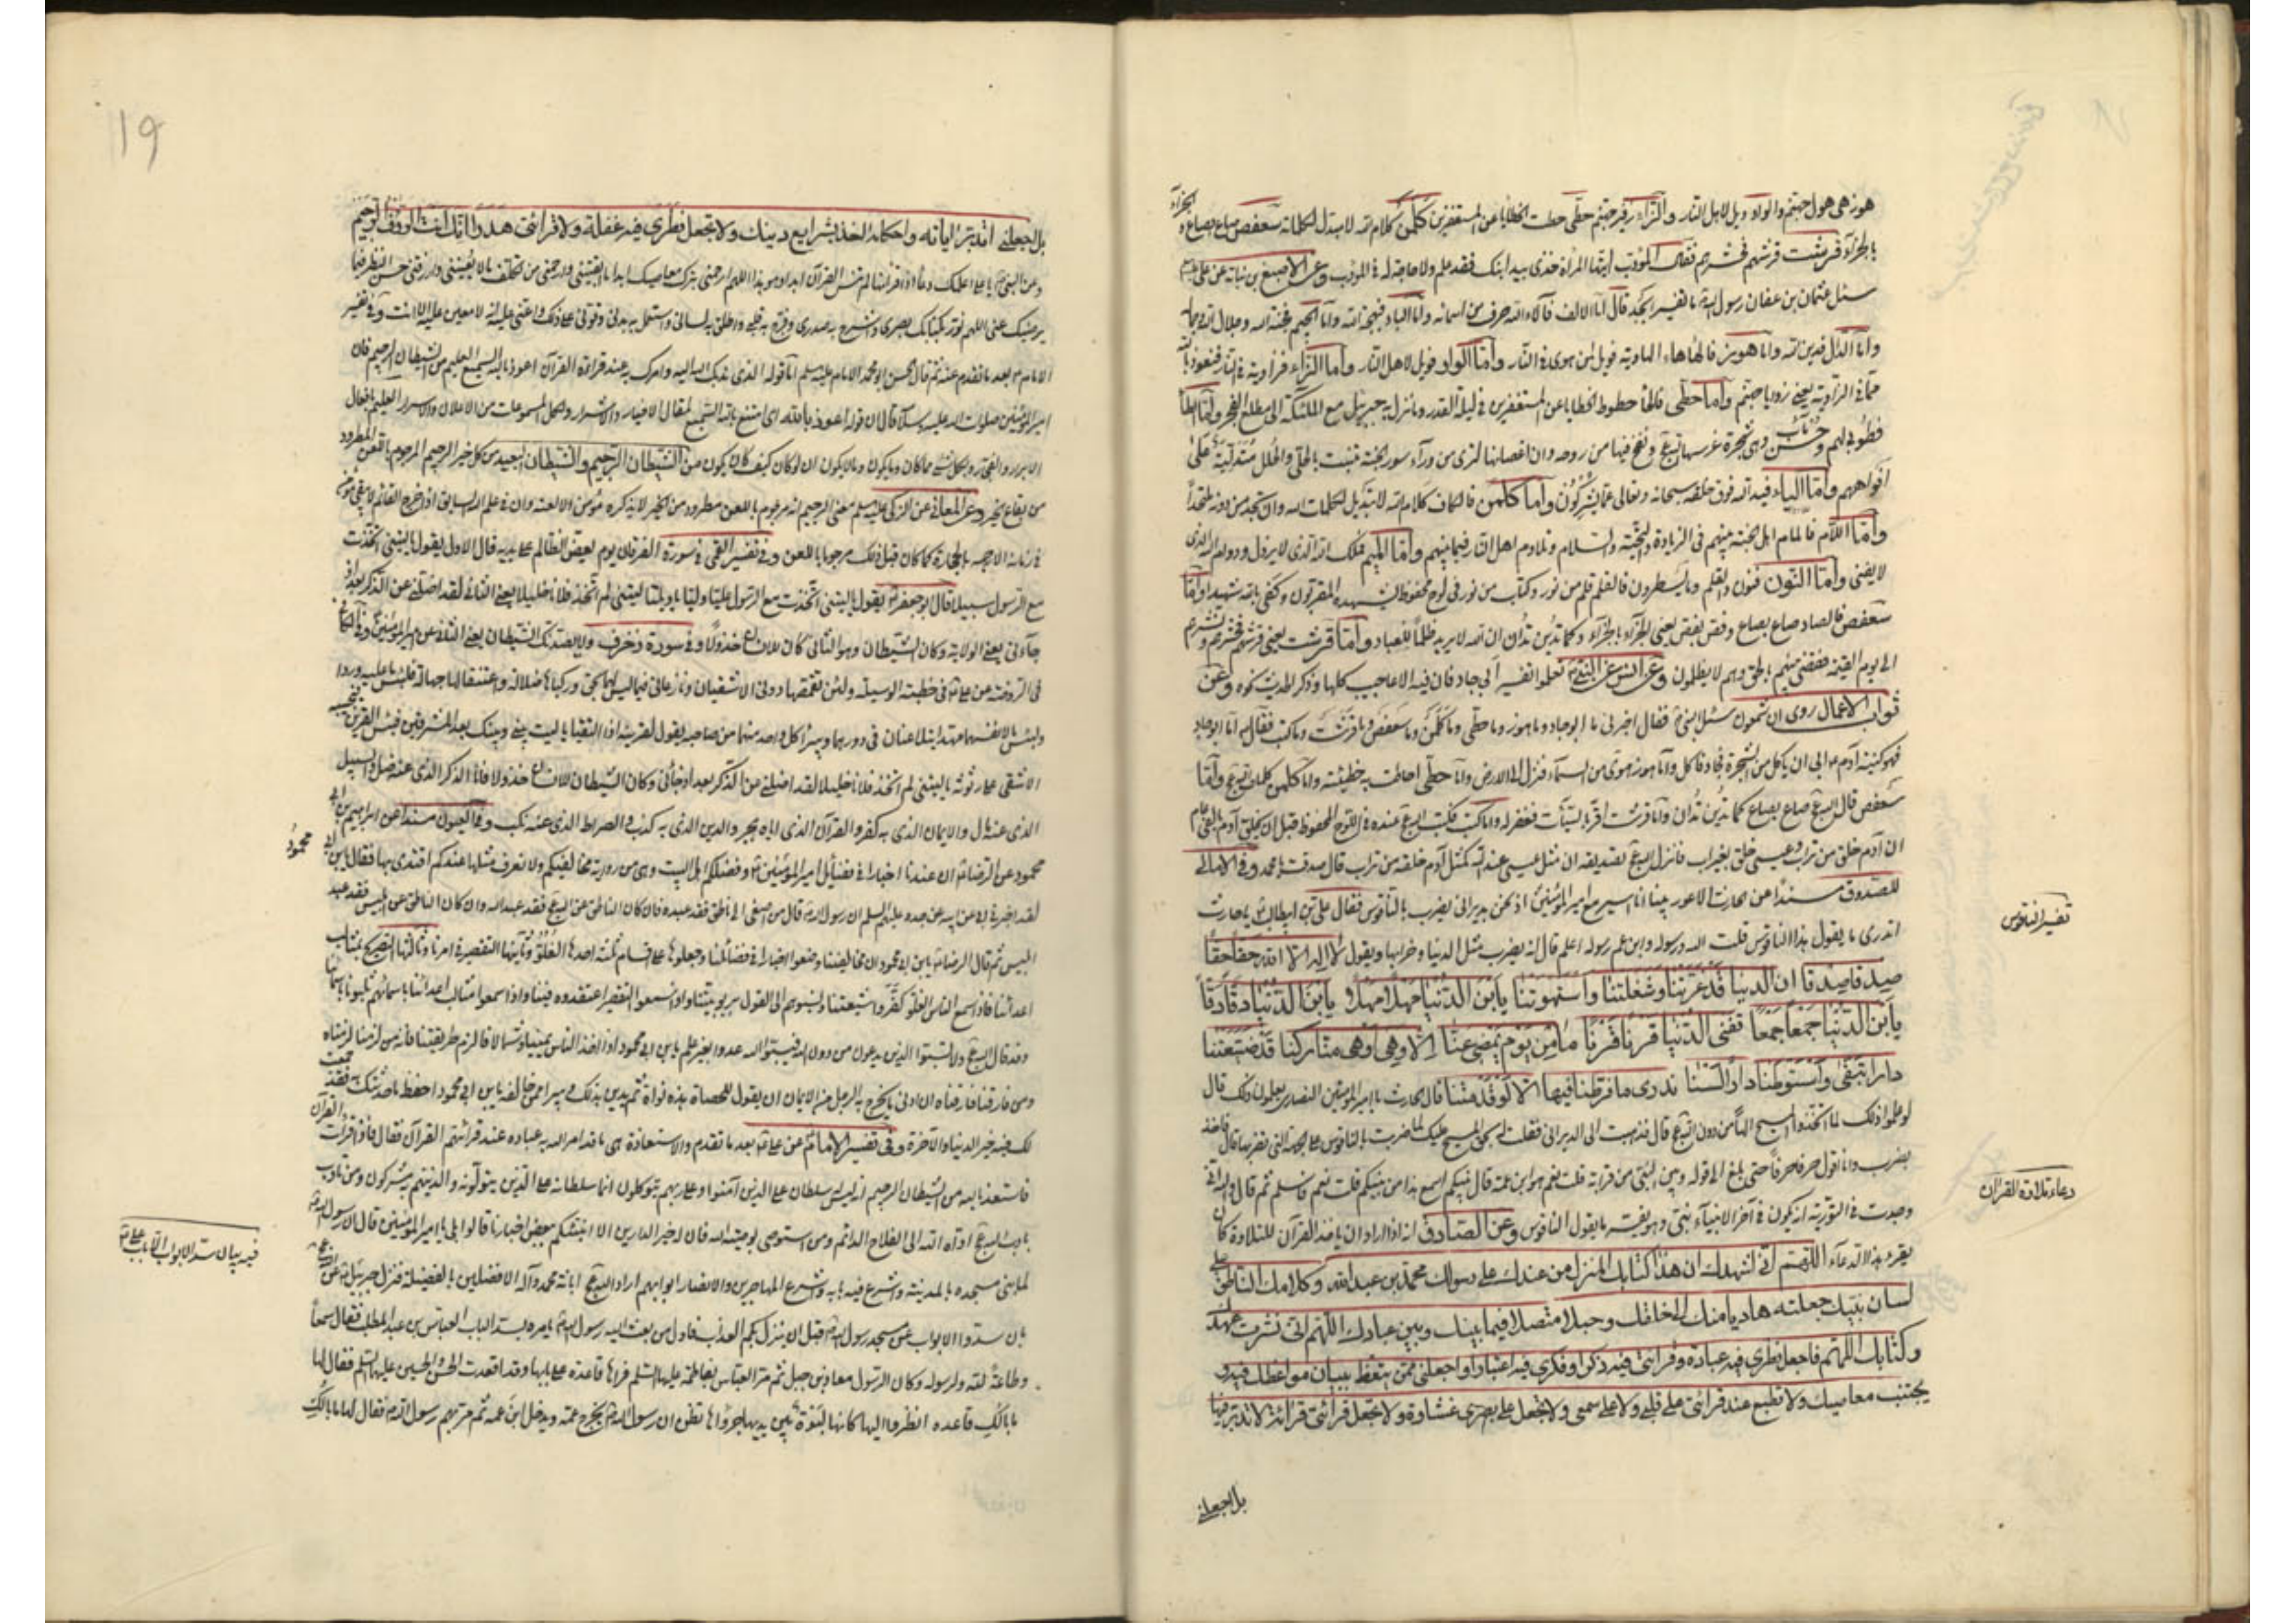 هوز هى هول جهنم والواو ويل لاهل النار والزاء زفير جهنم حطى حطت الخطايا عن المستغفرين كلمن كلام الله لا مبدل لكلماته سعفص صاع بصاع والجزاء
بالجزاء قرشت قرشهم فحشرهم فقال المؤدب ايتها المرأة خذى بيد ابنك فقد علم ولا حاجة له فى المؤدب وعن الاصبغ بن نباته عن على
سئل عثمان بن عفان رسول الله ما تفسير ابجد قال اما الالف فآلاء الله حرف من اسمائه واما الباء فبهجة الله واما الجيم فجنة الله وجلال الله وجماله
واما الدال فدين الله واما هوز فالهاء هاء الهاوية فويل لمن هوى فى النار واما الواو فويل لاهل النار واما الزاء فزاوية فى النار فنعوذ بالله
مما فى الزاوية يعنى زوايا جهنم واما حطى فالحاء حطوط الخطايا عن المستغفرين فى ليلة القدر وما نزل به جبرئيل مع الملئكة الى مطلع الفجر واما الطاء
فطوبى لهم وحسن مآب وهى شجرة غرسها الله ونفخ فيها من روحه وان اغصانها لترى من وراء سور الجنة تنبت بالحلى والحلل متدلية على
افواههم واما الياء فيد الله فوق خلقه سبحانه وتعالى عما يشركون واما كلمن فالكاف كلام الله لا تبديل لكلمات الله ولن تجد من دونه ملتحدا
واما اللام فالمام اهل الجنة بينهم فى الزيارة والتحية والسلام وتلاوم اهل النار فيما بينهم واما الميم فملك الله الذى لا يزول ودوام الله الذى
لا يفنى واما النون فنون والقلم وما يسطرون فالقلم قلم من نور وكتاب من نور فى لوح محفوظ يشهده المقربون وكفى بالله شهيدا واما
سعفص فالصاد صاع بصاع وفص بفص يعنى الجزاء بالجزاء وكما تدين تدان ان الله لا يريد ظلما للعباد واما قرشت يعنى قرشهم فحشرهم ونشرهم
الى يوم القيمة فقضى بينهم بالحق وهم لا يظلمون وعن انس عن النبى تعلموا تفسير ابى جاد فان فيه الاعاجيب كلها وذكر الحديث نحوه وعن
ثواب الاعمال روى ان شمعون سئل النبى فقال اخبرنى ما ابوجاد وما هوز وما حطى وما كلمن وما سعفص وما قرشت وما كتب فقال اما ابوجاد
فهو كنية آدم ابى ان ياكل من الشجرة فجاد فاكل واما هوز هوى من السماء فنزل الى الارض واما حطى احاطت به خطيئته واما كلمن كلمات الله واما
سعفص قال الله صاع بصاع كما تدين تدان واما قرشت اقر بالسيئات فغفر له واما كتب فكتب الله عنده فى اللوح المحفوظ قبل ان يخلق آدم بالفى عام
ان آدم خلق من تراب وعيسى خلق بغير اب فانزل الله تصديقه ان مثل عيسى عند الله كمثل آدم خلقه من تراب قال صدقت يا محمد وفى الامالى
للصدوق مسندا عن الحارث الاعور بينا انا اسير مع امير المؤمنين اذ نحن بديرانى يضرب بالناقوس فقال على بن ابيطالب يا حارث
تفسير الناقوس
اتدرى ما يقول هذا الناقوس قلت الله ورسوله وابن عم رسوله اعلم قال انه يضرب مثل الدنيا وخرابها ويقول لا اله الا الله حقا حقا
صدقا صدقا ان الدنيا قد غرتنا وشغلتنا واستهوتنا يابن الدنيا مهلا مهلا يابن الدنيا دقا دقا
يابن الدنيا جمعا جمعا تفنى الدنيا قرنا قرنا ما من يوم يمضى عنا الا وهى اوهى منا ركنا قد ضيعنا
دارا تبقى واستوطنا دارا تفنى لسنا ندرى ما فرطنا فيها الا لو قد متنا قال الحارث يا امير المؤمنين النصارى يعلمون ذلك قال
لو علموا ذلك لما اتخذوا المسيح الها من دون الله قال فذهبت الى الديرانى فقلت له بحق المسيح عليك لما ضربت بالناقوس على الجهة التى تضربها قال فاخذ
يضرب وانا اقول حرفا حرفا حتى بلغ الى قوله وبين النبى من قرابة قلت نعم هو ابن عمه قال بنبيكم اسمع هذا من نبيكم قلت نعم فاسلم ثم قال والله انى
وجدت فى التورية انه يكون فى آخر الانبياء نبى وهو يفسر ما يقول الناقوس وعن الصادق انه اذا اراد ان ياخذ القرآن للتلاوة كان
دعاء تلاوة القرآن
يقرء بهذا الدعاء اللهم انى اشهدك ان هذا كتابك المنزل من عندك على رسولك محمد بن عبدالله وكلامك الناطق على
لسان نبيك جعلته هاديا منك الى خلقك وحبلا متصلا فيما بينك وبين عبادك اللهم انى نشرت عهدك
وكتابك اللهم فاجعل نظرى فيه عبادة وقرائتى فيه ذكرا وفكرى فيه اعتبارا واجعلنى ممن يتعظ ببيان مواعظك فيه و
يجتنب معاصيك ولا تطبع عند قرائتى على قلبى ولا على سمعى ولا تجعل على بصرى غشاوة ولا تجعل قرائتى قرائة لا تدبر فيها
بل اجعلنى
19
بل اجعلنى اتدبر اياته واحكامه اخذ بشرايع دينك ولا تجعل نظرى فيه غفلة ولا قرائتى هذرا انك انت الرؤف الرحيم
وعن النبى يا على اعلمك دعاء اذا قرأته لم تنس القرآن ابدا وهو هذا اللهم ارحمنى بترك معاصيك ابدا ما ابقيتنى وارحمنى من تكلف ما لا يعنينى وارزقنى حسن النظر فيما
يرضيك عنى اللهم نور بكتابك بصرى واشرح به صدرى وفرح به قلبى واطلق به لسانى واستعمل به بدنى وقونى على ذلك واعنى عليه انه لا معين عليه الا انت وفى تفسير
الامام بعد ما تقدم عنه ثم قال الحسن ابو محمد الامام عليه سلم اما قوله الذى ندبك الله اليه وامرك به عند قراءة القرآن اعوذ بالله السميع العليم من الشيطان الرجيم فان
امير المؤمنين صلوات الله عليه وسلامه قال ان قوله اعوذ بالله اى امتنع بالله السميع لمقال الاخيار والاشرار ولكل المسموعات من الاعلان والاسرار العليم بافعال
الابرار والفجار وبكل شىء مما كان وما يكون وما لا يكون ان لو كان كيف كان يكون من الشيطان الرجيم والشيطان البعيد من كل خير الرجيم المرجوم باللعن المطرود
من بقاع الخير وعن المعانى عن الزكى عليه سلم معنى الرجيم انه مرجوم باللعن مطرود من الخير لا يذكره مؤمن الا لعنه وان فى علم الله السابق اذا خرج القائم لا يبقى مؤمن
فى زمانه الا رجمه بالحجارة كما كان قبل ذلك مرجوما باللعن وفى تفسير القمى فى سورة الفرقان يوم يعض الظالم على يديه قال الاول يقول يا ليتنى اتخذت
مع الرسول سبيلا قال ابو جعفر يقول يا ليتنى اتخذت مع الرسول عليا وليا يا ويلتا ليتنى لم اتخذ فلانا خليلا يعنى الثانى لقد اضلنى عن الذكر بعد اذ
جاءنى يعنى الولاية وكان الشيطان وهو الثانى كان للانسان خذولا وفى سورة زخرف ولا يصدنك الشيطان يعنى الثانى عن امير المؤمنين وفى الكافى
فى الروضة عن على فى خطبته الوسيلة ولئن تقمصها دونى الاشقيان ونازعانى فيما ليس لهما بحق وركباها ضلالة واعتنقاها جهالة فلبئس ما عليه وردا
ولبئس ما لانفسهما مهدا يتلاعنان فى دورهما ويبرأ كل واحد منهما من صاحبه يقول لقرينه اذا التقيا يا ليت بينى وبينك بعد المشرقين فبئس القرين فيجيبه
الاشقى على رثوثة يا ليتنى لم اتخذ فلانا خليلا لقد اضلنى عن الذكر بعد اذ جائنى وكان الشيطان للانسان خذولا فانا الذكر الذى عنه ضل والسبيل
الذى عنه مال والايمان الذى به كفر والقرآن الذى اياه هجر والدين الذى به كذب والصراط الذى عنه نكب وفى العيون مسندا عن ابراهيم بن ابى
محمود
محمود عن الرضا ان عندنا اخبارا فى فضائل امير المؤمنين وفضلكم اهل البيت وهى من رواية مخالفيكم ولا نعرف مثلها عندكم افندين بها فقال يابن ابى
لقد اخبرنى ابى عن ابيه عن جده عليهم السلم ان رسول الله قال من اصغى الى ناطق فقد عبده فان كان الناطق عن الله فقد عبد الله وان كان الناطق عن ابليس فقد عبد
ابليس ثم قال الرضا يابن ابى محمود ان مخالفينا وضعوا اخبارا فى فضائلنا وجعلوها على اقسام ثلثة احدها الغلو وثانيها التقصير فى امرنا وثالثها التصريح بمثالب
اعدائنا فاذا سمع الناس الغلو كفروا شيعتنا ونسبوهم الى القول بربوبيتنا واذا سمعوا التقصير اعتقدوه فينا واذا سمعوا مثالب اعدائنا باسمائهم ثلبونا باسمائنا
وقد قال الله ولا تسبوا الذين يدعون من دون الله فيسبوا الله عدوا بغير علم يابن ابى محمود اذا اخذ الناس يمينا وشمالا فالزم طريقتنا فانه من لزمنا لزمناه
ومن فارقنا فارقناه ان ادنى ما يخرج به الرجل من الايمان ان يقول للحصاة هذه نواة ثم يدين بذلك ويبرأ ممن خالفه يابن ابى محمود احفظ ما حدثتك فقد جمعت
لك فيه خير الدنيا والآخرة وفى تفسير الامام عن على بعد ما تقدم والاستعاذة هى ما قد امر الله به عباده عند قرائتهم القرآن فقال فاذا قرأت القرآن
فاستعذ بالله من الشيطان الرجيم انه ليس له سلطان على الذين آمنوا وعلى ربهم يتوكلون انما سلطانه على الذين يتولونه والذينهم به مشركون ومن تادب
بادب الله اداه الله الى الفلاح الدائم ومن استوصى بوصية الله فان له خير الدارين الا انبئكم ببعض اخبارنا قالوا بلى يا امير المؤمنين قال ان رسول الله
فيه بيان سد الابواب الا باب على
لما بنى مسجده بالمدينة واشرع فيه بابه واشرع المهاجرين والانصار ابوابهم اراد الله ابانة محمد وآله الافضلين بالفضيلة فنزل جبرئيل عن الله
بان سدوا الابواب عن مسجد رسول الله قبل ان ينزل بكم العذاب فاول من بعث اليه رسول الله يامره بسد الباب العباس بن عبد المطلب فقال سمعا
وطاعة لله ولرسوله وكان الرسول معاذ بن جبل ثم مر العباس بفاطمة عليها السلم فراها قاعدة على بابها وقد اقعدت الحسن والحسين عليهما السلم فقال لها
ما بالك قاعده انظروا اليها كانها لبوة بين يديها جرواها تظن ان رسول الله يخرج عمه ويدخل ابن عمه ثم مر بهم رسول الله فقال لها ما بالك